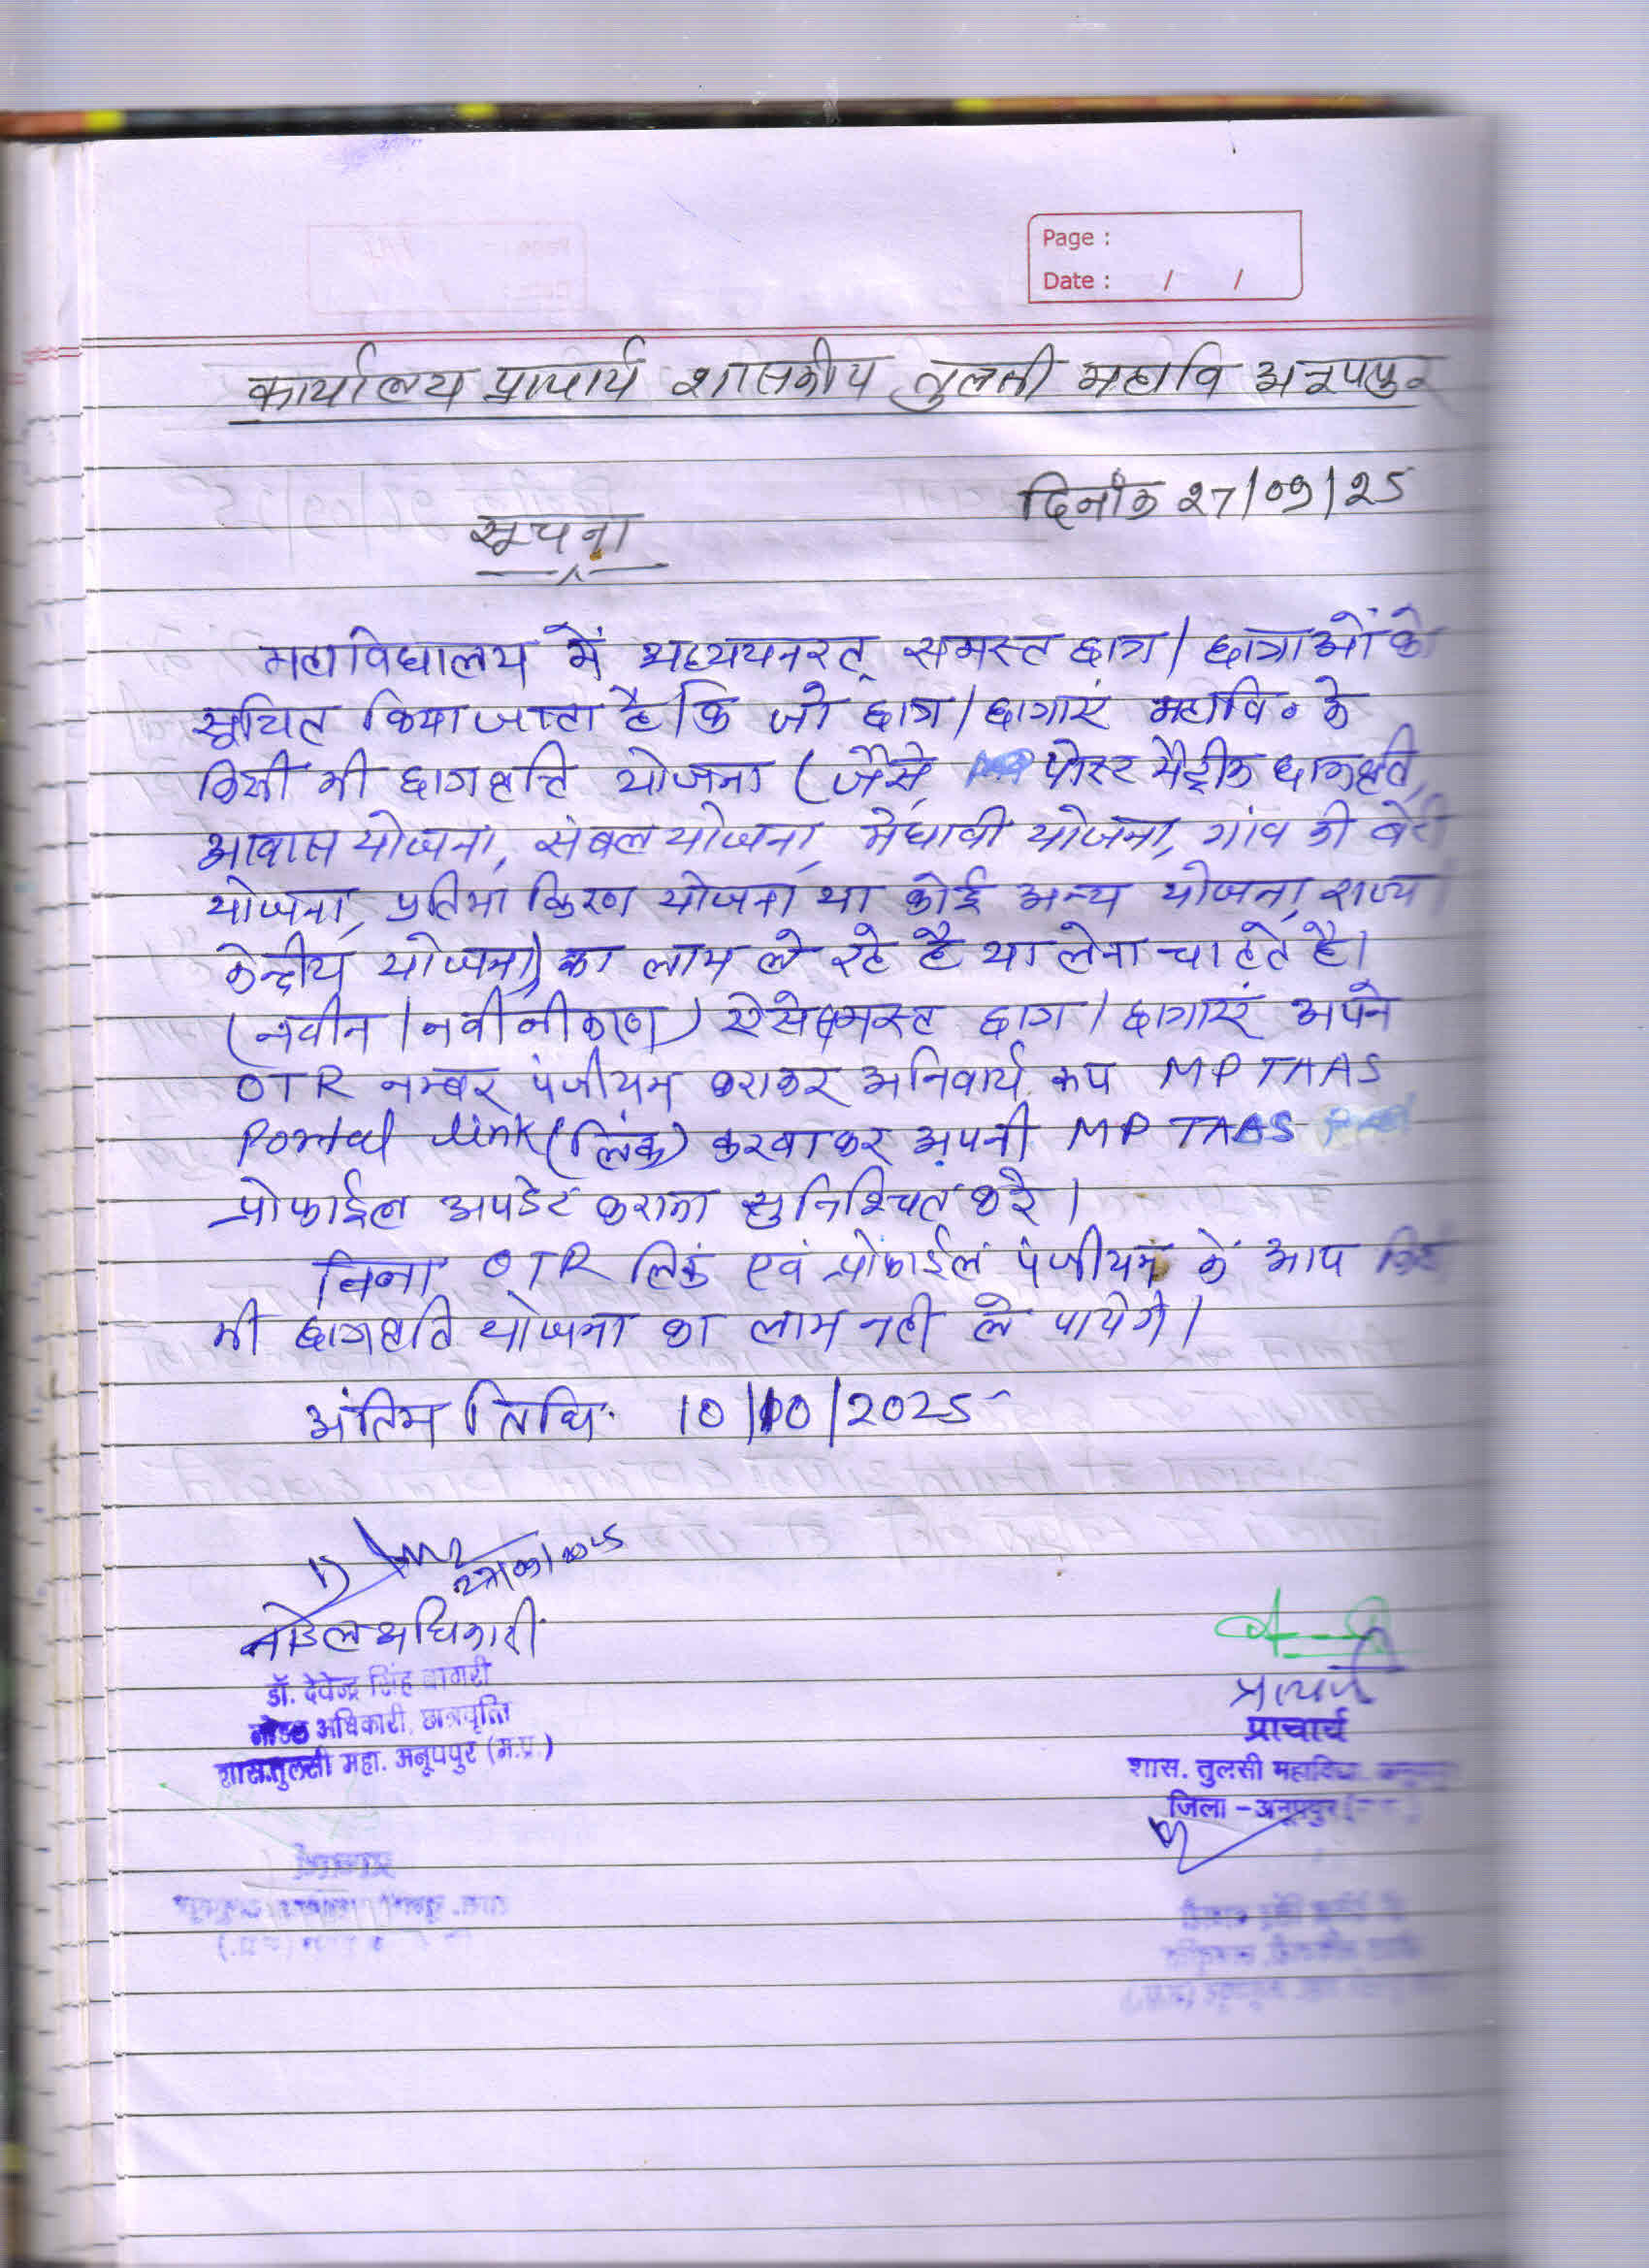 Page :
Date : / /
कार्यालय प्राचार्य शासकीय तुलसी महावि अनूपपुर
दिनांक 27/09/25
सूचना
महाविद्यालय में अध्ययनरत् समस्त छात्र/छात्राओं को
सूचित किया जाता है कि जो छात्र/छात्राएं महावि॰ के
किसी भी छात्रवृत्ति योजना (जैसे, पोस्ट मैट्रीक छात्रवृत्ति,
आवास योजना, संबल योजना, मेधावी योजना, गांव की बेटी
योजना, प्रतिभा किरण योजना या कोई अन्य योजना, राज्य
केन्द्रीय योजना) का लाभ ले रहे है या लेना चाहते है।
(नवीन/नवीनीकरण) ऐसे समस्त छात्र/छात्राएं अपने
OTR नम्बर पंजीयन कराकर अनिवार्य रूप MP TAAS
Portal link (लिंक) करवाकर अपनी MP TAAS
प्रोफाईल अपडेट कराना सुनिश्चित करे।
बिना OTR लिंक एवं प्रोफाईल पंजीयन के आप
भी छात्रवृत्ति योजना का लाभ नही ले पायेगे।
अंतिम तिथि. 10/10/2025
नोडल अधिकारी
डॉ. देवेन्द्र सिंह बागरी
नोडल अधिकारी, छात्रवृत्ति
शास.तुलसी महा. अनूपपुर (म.प्र.)
प्राचार्य
प्राचार्य
शास. तुलसी महाविद्या.
जिला - अनूपपुर